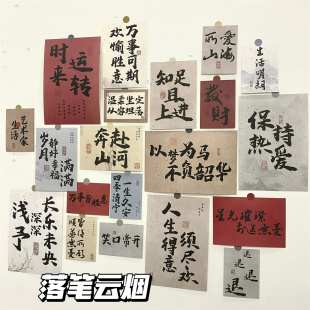 时来运转
万事可期
欢愉胜意
知足且上进
所爱隔山海
生活明朗
温柔要坚定
發财
保持热爱
艺术家
生活
静好
幸福
满满
岁月
奔赴山河
以梦为马
不负韶华
长乐未央
深深
浅予
万事皆胜意
一生久安
四季清宁
笑口常开
人生得意须尽欢
星光璀璨
退退退
落笔云烟